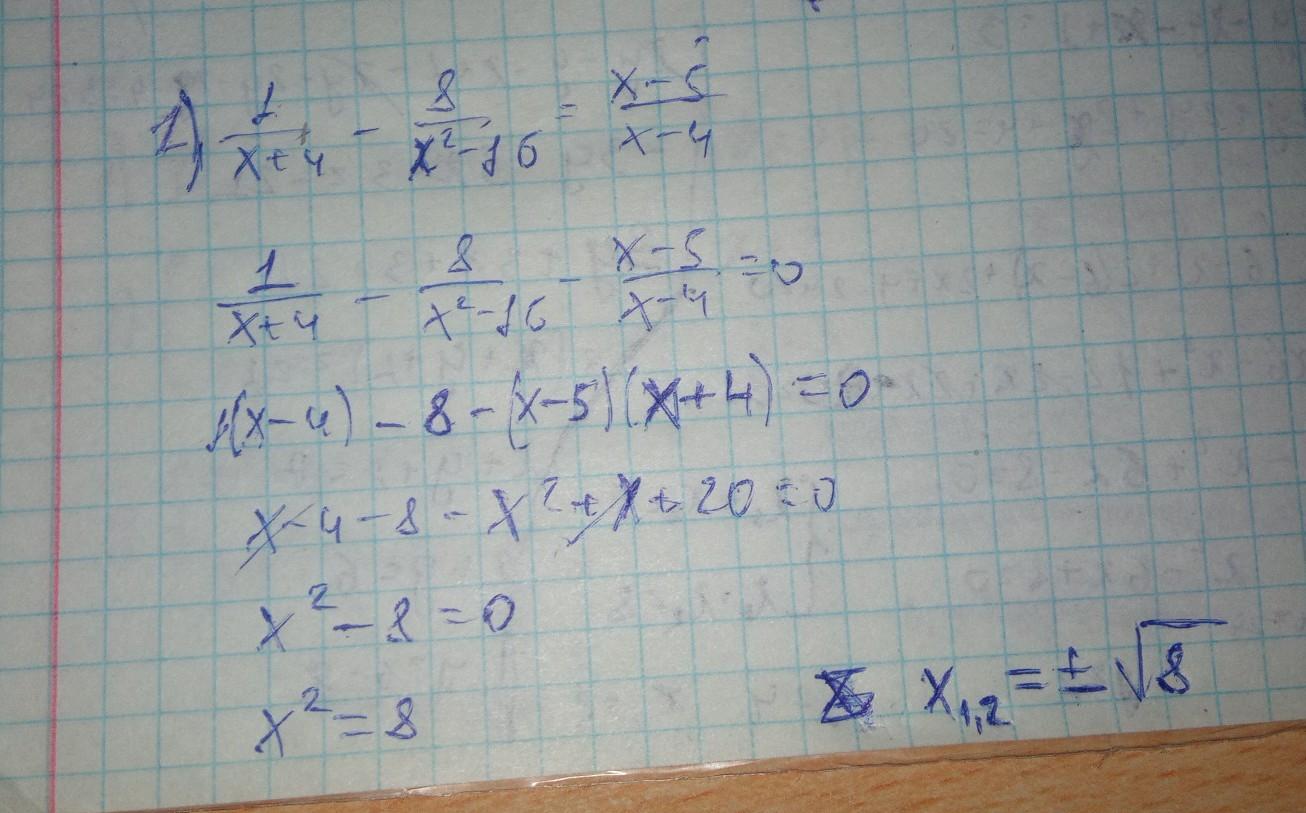 1) 1/(x+4) - 8/(x²-16) = (x-5)/(x-4)
1/(x+4) - 8/(x²-16) - (x-5)/(x-4) = 0
1(x-4) - 8 - (x-5)(x+4) = 0
x-4-8-x²+x+20=0
x²-8=0
x²=8
x₁,₂ = ±√8